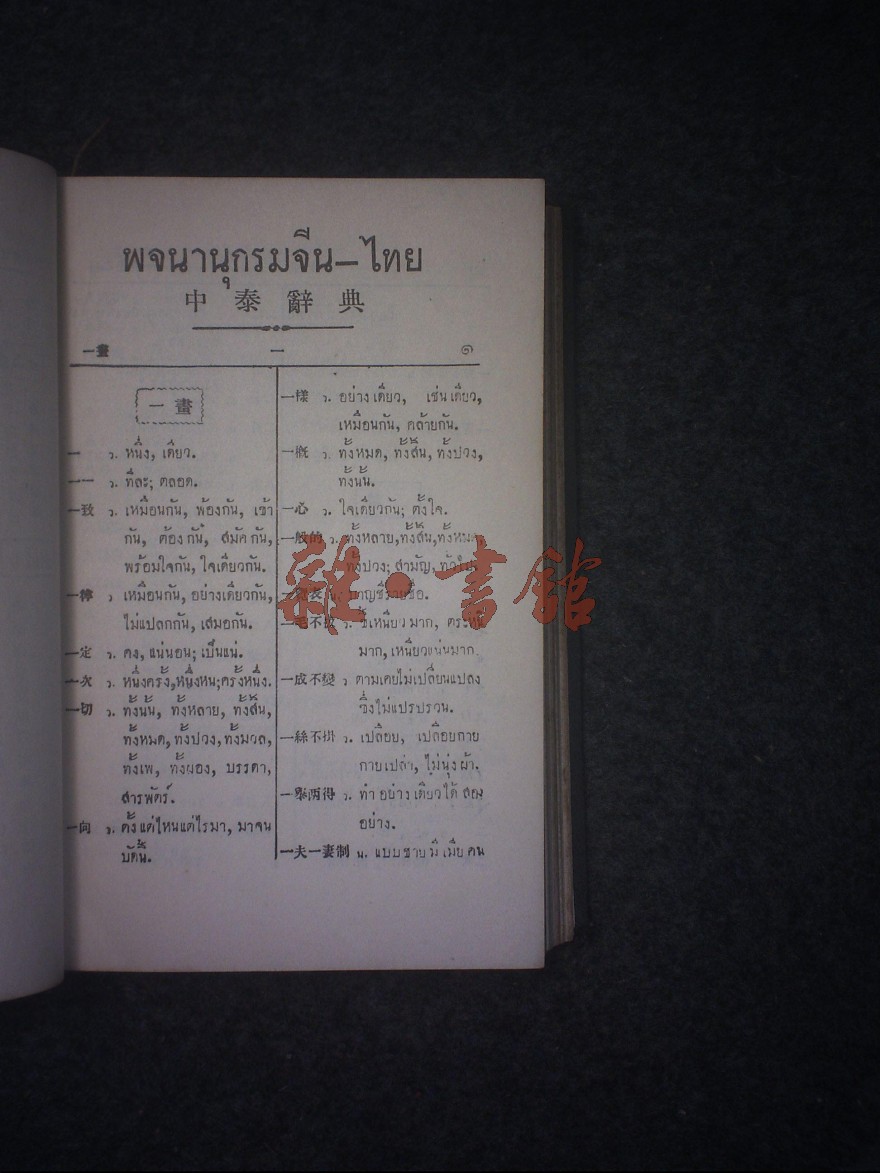 พจนานุกรมจีน—ไทย
中泰辭典
一畫 一 ๑
一畫
一 ว. หนึ่ง, เดียว.
一一 ว. ทีละ; ตลอด.
一致 ว. เหมือนกัน, พ้องกัน, เข้า
กัน, ต้องกัน, สมัคกัน,
พร้อมใจกัน, ใจเดียวกัน.
一樣 ว. อย่างเดียว, เช่นเดียว,
เหมือนกัน, คล้ายกัน.
一概 ว. ทั้งหมด, ทั้งสิ้น, ทั้งปวง,
ทั้งนั้น.
一心 ว. ใจเดียวกัน; ตั้งใจ.
一般的 ว. ทั้งหลาย, ทั้งสิ้น, ทั้งหมด,
ทั้งปวง; สามัญ,
ว เหมือนกัน, อย่างเดียวกัน,
ไม่แปลกกัน, เสมอกัน.
一定 ว. คง, แน่นอน; เป็นแน่.
一次 ว. หนึ่งครั้ง, หนึ่งหน; ครั้งหนึ่ง.
一切 ว. ทั้งนั้น, ทั้งหลาย, ทั้งสิ้น,
ทั้งหมด, ทั้งปวง, ทั้งมวล,
ทั้งเพ, ทั้งผอง, บรรดา,
สารพัตร์.
一向 ว. ตั้งแต่ไหนแต่ไรมา, มาจน
บัดนี้.
一毛不拔 ว. ขี้เหนียวมาก, ตระหนี่
มาก, เหนียวแน่นมาก.
一成不變 ว ตามเคยไม่เปลี่ยนแปลง
ซึ่งไม่แปรปรวน.
一絲不掛 ว. เปลือย, เปลือยกาย
กายเปล่า, ไม่นุ่งผ้า.
一舉兩得 ว. ทำอย่างเดียวได้สอง
อย่าง.
一夫一妻制 น. แบบชายมีเมียคน
雜·書館